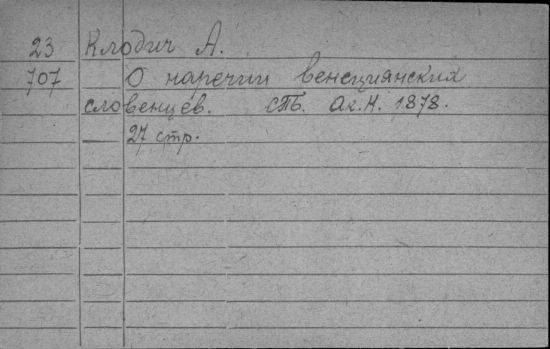 23 Клодич А.
707 О наречии венецианских
словенцев. СПб. Ак.Н. 1878.
27 стр.